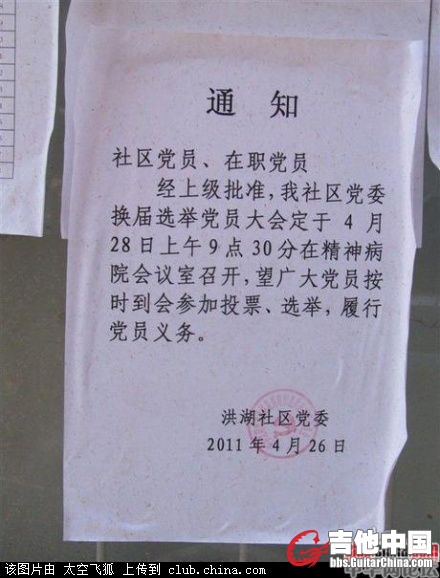 通 知
社区党员、在职党员
经上级批准，我社区党委
换届选举党员大会定于 4 月
28日上午9点30分在精神病
院会议室召开，望广大党员按
时到会参加投票、选举，履行
党员义务。
洪湖社区党委
2011年4月26日
吉他中国
bbs.GuitarChina.com
该图片由 太空飞狐 上传到 club.china.com